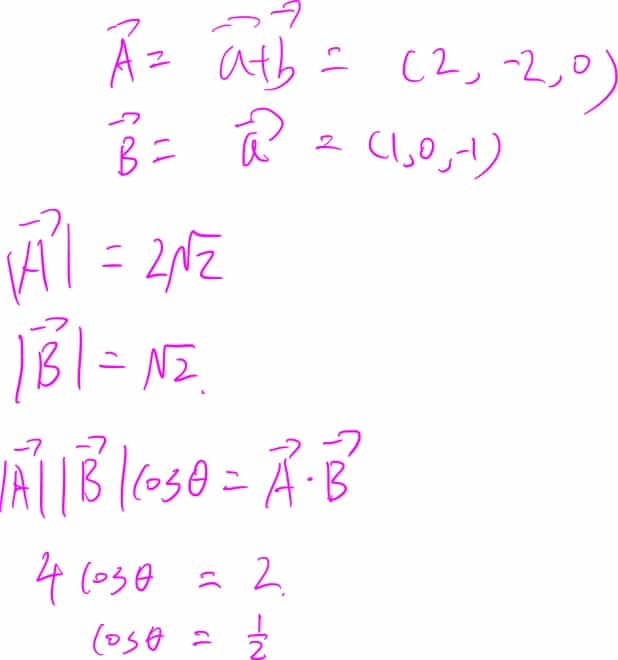 A⃗ = a⃗+b⃗ = (2, -2, 0)
B⃗ = a⃗ = (1, 0, -1)
|A⃗| = 2√2
|B⃗| = √2.
|A⃗||B⃗|cosθ = A⃗·B⃗
4 cosθ = 2.
cosθ = 1/2